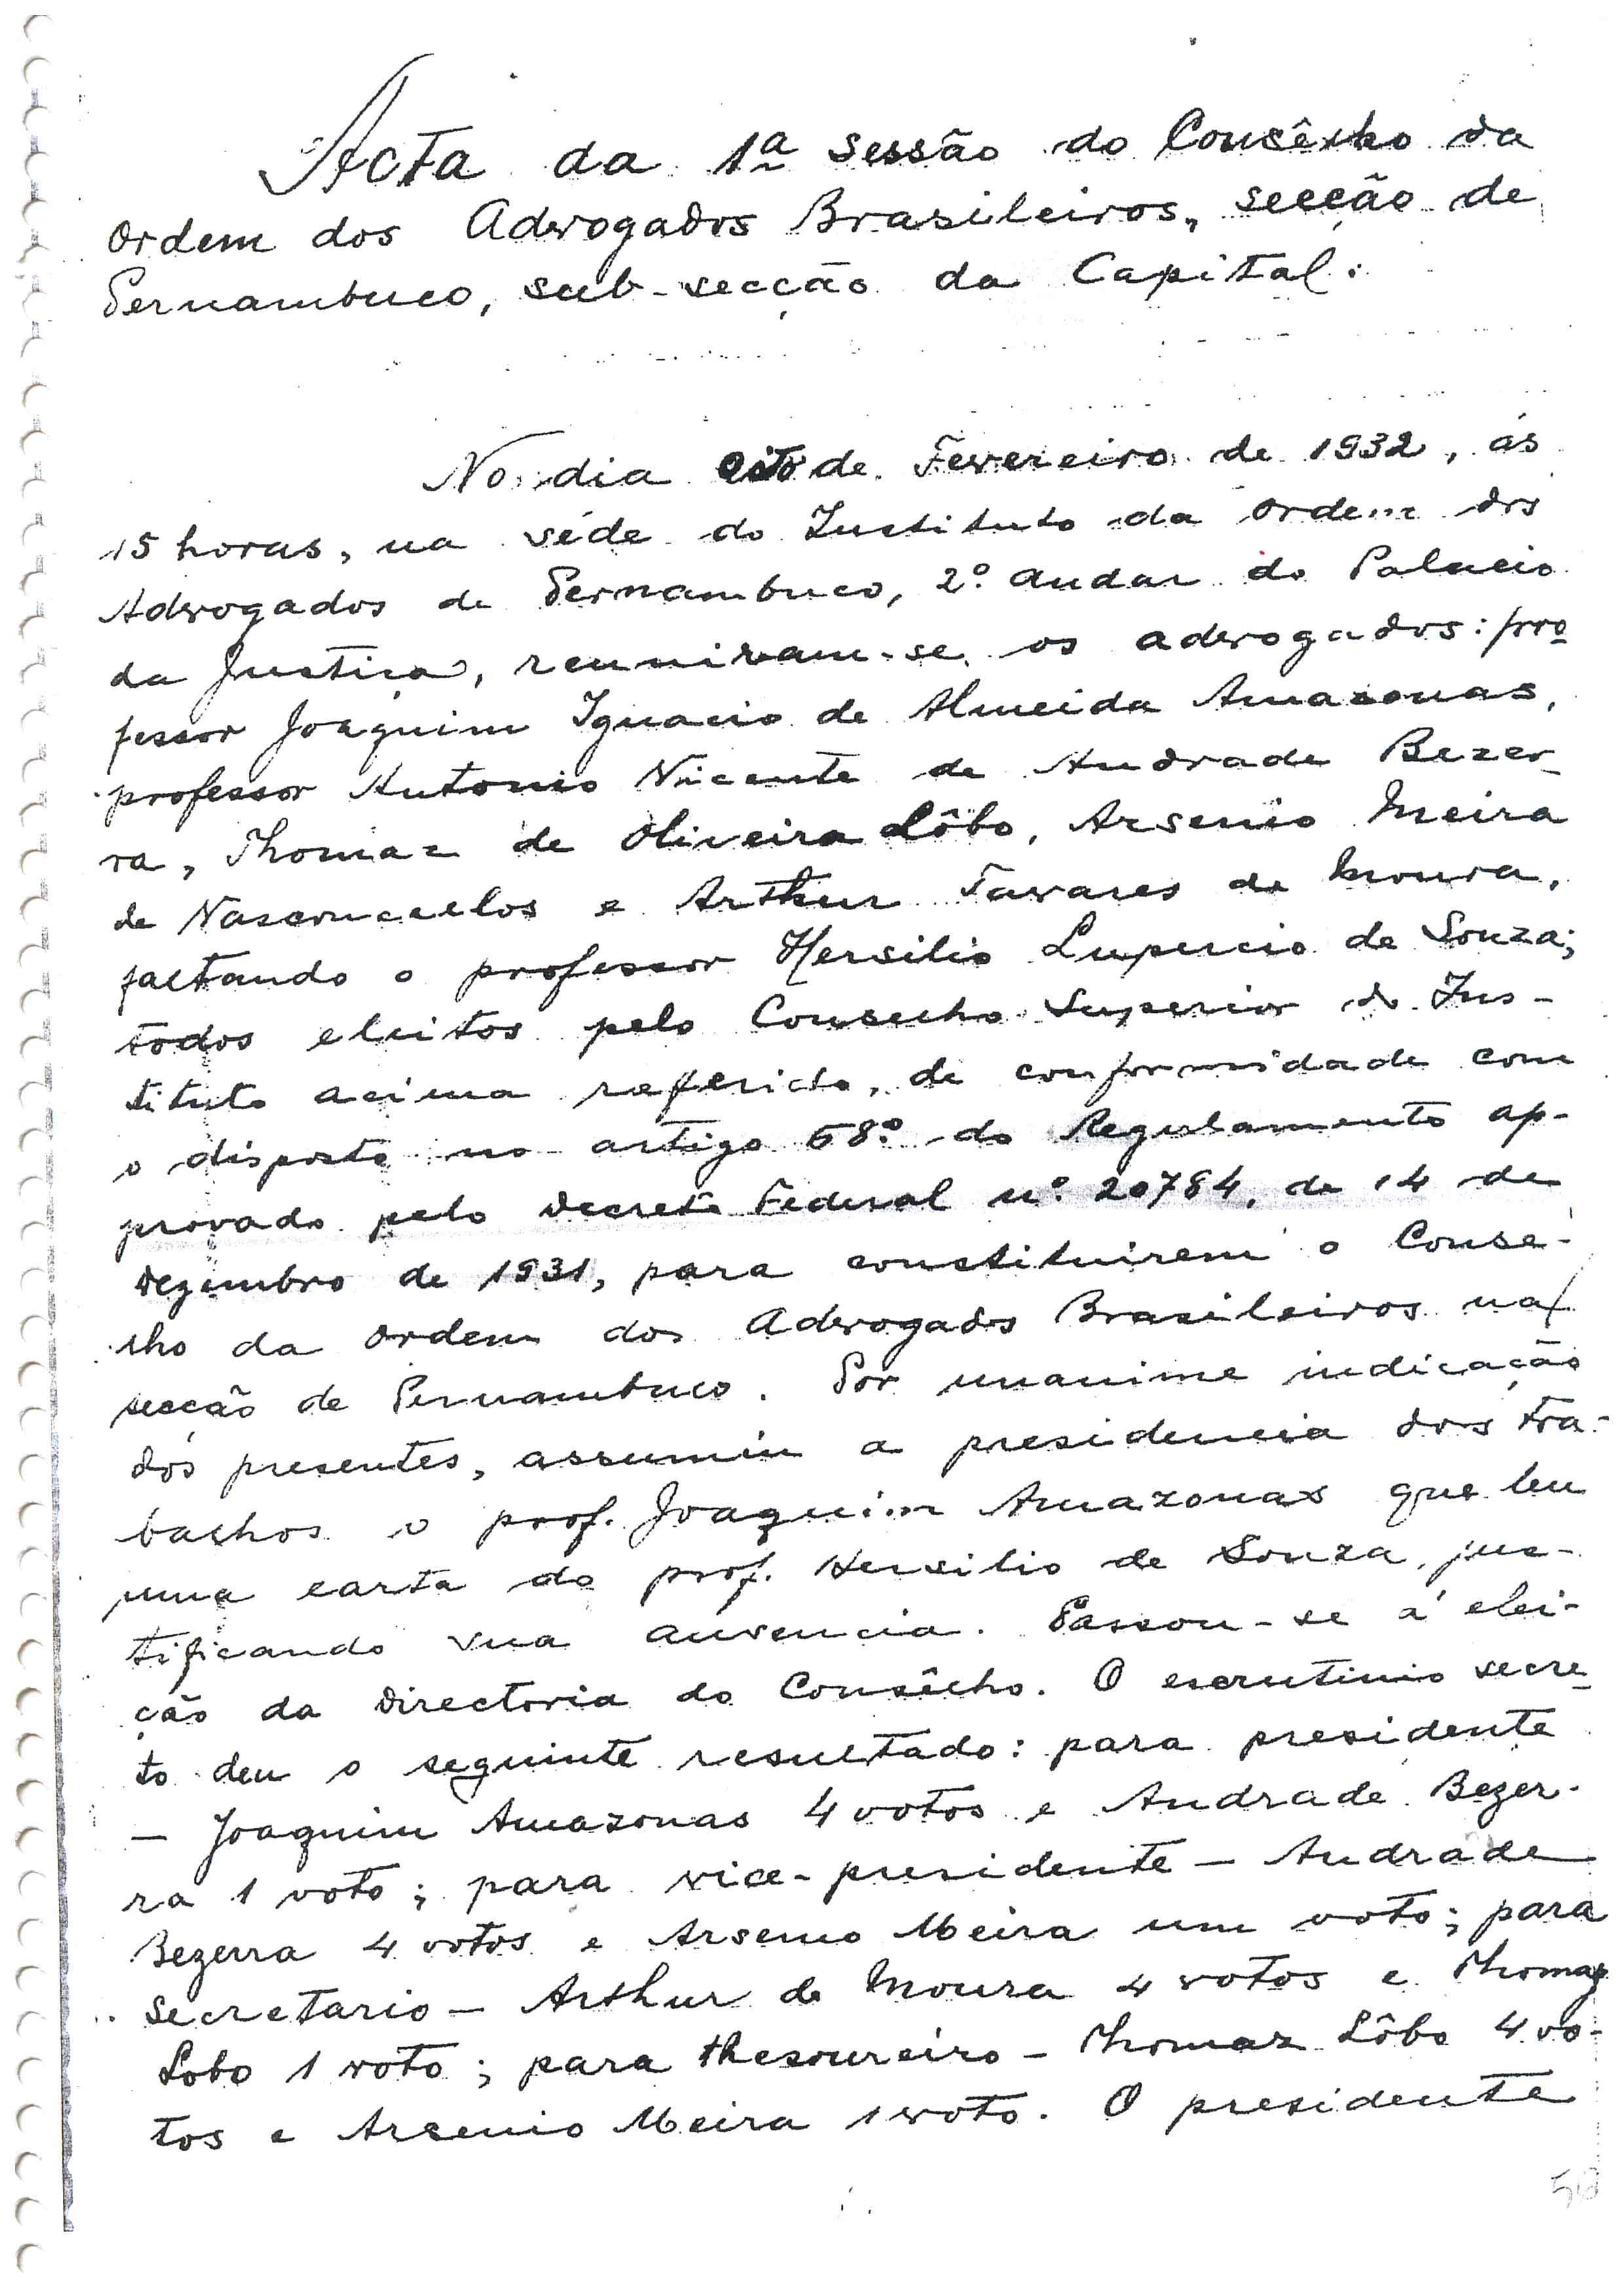 Acta da 1ª sessão do Consêlho da
Ordem dos Advogados Brasileiros, secção de
Pernambuco, sub-secção da Capital:
No dia oito de Fevereiro de 1932, ás
15 horas, na séde do Instituto da Ordem dos
Advogados de Pernambuco, 2º andar do Palacio
da Justiça, reuniram-se os advogados: pro
fessor Joaquim Ignacio de Almeida Amazonas,
professor Antonio Vicente de Andrade Bezer-
ra, Thomaz de Oliveira Lôbo, Arsenio Meira
de Vasconcellos e Arthur Tavares de Moura,
faltando o professor Hersilio Lupercio de Souza;
todos eleitos pelo Conselho Superior do Ins-
tituto acima referido, de conformidade com
o disposto no artigo 68º do Regulamento ap-
provado pelo Decreto Federal nº 20784, de 14 de
Dezembro de 1931, para constituirem o Conse-
lho da Ordem dos Advogados Brasileiros na
secção de Pernambuco. Por unanime indicação
dos presentes, assumiu a presidencia dos tra-
balhos o prof. Joaquim Amazonas que leu
uma carta do prof. Hersilio de Souza, jus-
tificando sua ausencia. Passou-se á elei-
ção da Directoria do Consêlho. O escrutinio secre-
to deu o seguinte resultado: para presidente
— Joaquim Amazonas 4 votos e Andrade Bezer-
ra 1 voto; para vice-presidente — Andrade
Bezerra 4 votos e Arsenio Meira um voto; para
secretario — Arthur de Moura 4 votos e Thomaz
Lobo 1 voto; para thesoureiro — Thomaz Lôbo 4 vo-
tos e Arsenio Meira 1 voto. O presidente